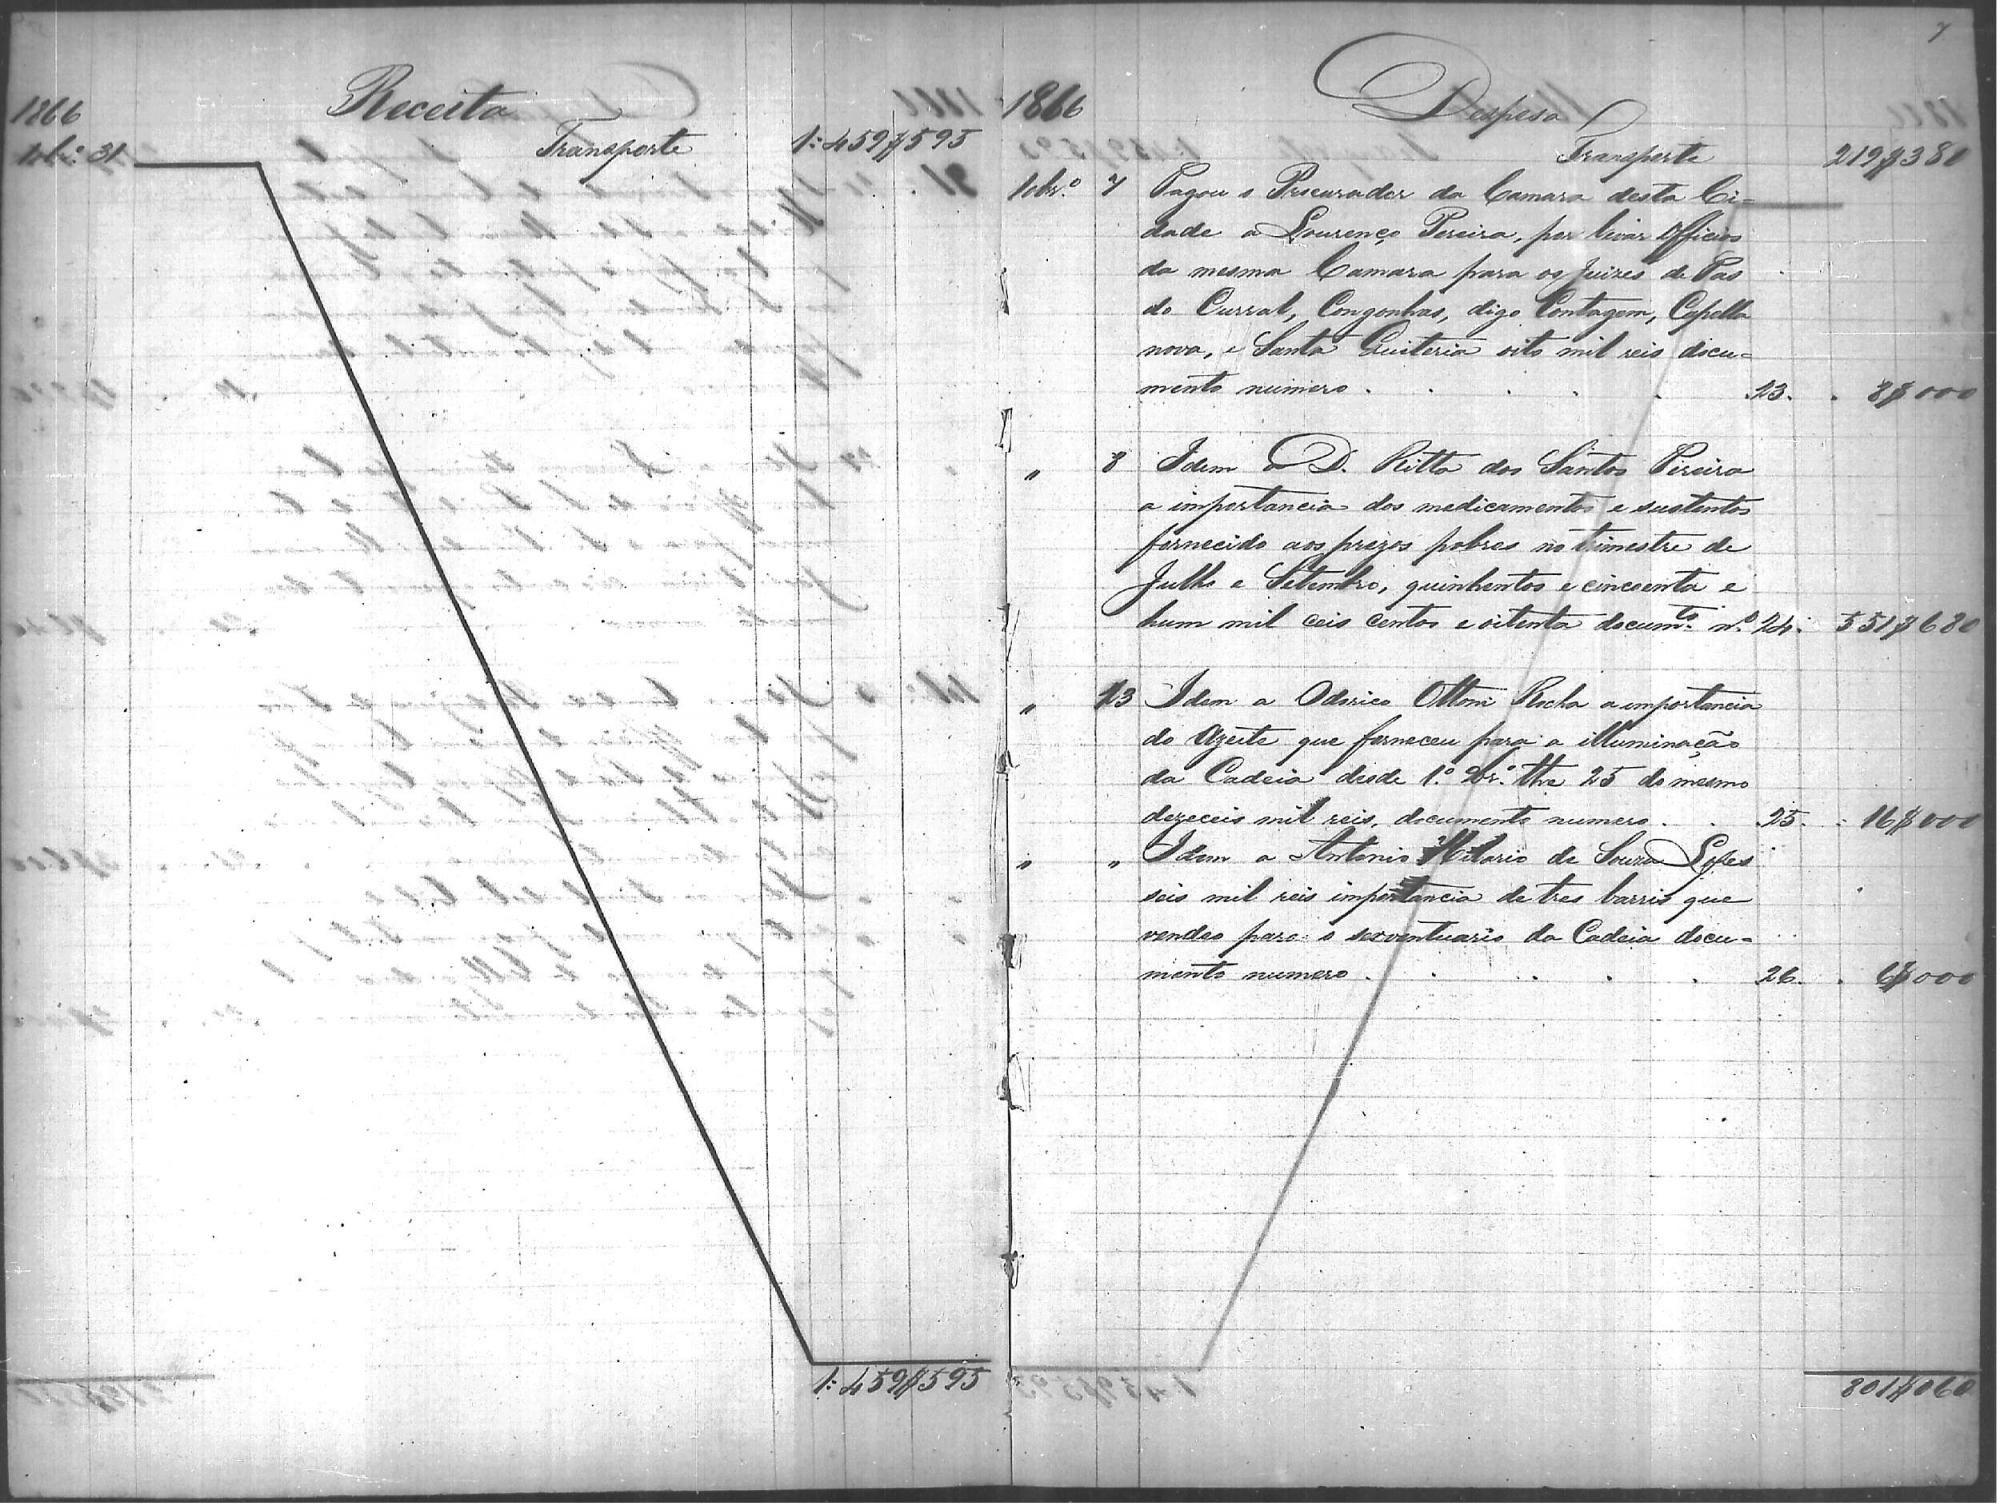 1866
Receita
10br.º 31
Transporte 1:459$595
1:459$595
7
1866
Despesa
Transporte 219$380
10br.º 7 Pagou o Procurador da Camara desta Ci=
dade a Lourenço Pereira, por levar Officios
da mesma Camara para os Juizes de Paz
do Curral, Congonhas, digo Contagem, Capella
nova, e Santa Quiteria oito mil reis docu=
mento numero . . . . 23. . 8$000
" 8 Idem a D. Ritta dos Santos Pereira
a importancia dos medicamentos e sustentos
fornecido aos prezos pobres no trimestre de
Julho e Setembro, quinhentos e cincoenta e
hum mil ceis centos e oitenta docum.to n.º 24. 551$680
" 13 Idem a Odorico Ottoni Rocha a importancia
do Azeite que forneceu para a illuminação
da Cadeia desde 1.º 25 do mesmo
dezeceis mil reis, documento numero . . 25. . 16$000
" " Idem a Antonio Hilario de Souza Lopes
seis mil reis importancia de tres barris que
vendeo para o serventuario da Cadeia docu=
mento numero . . . . . 26. . 6$000
801$060